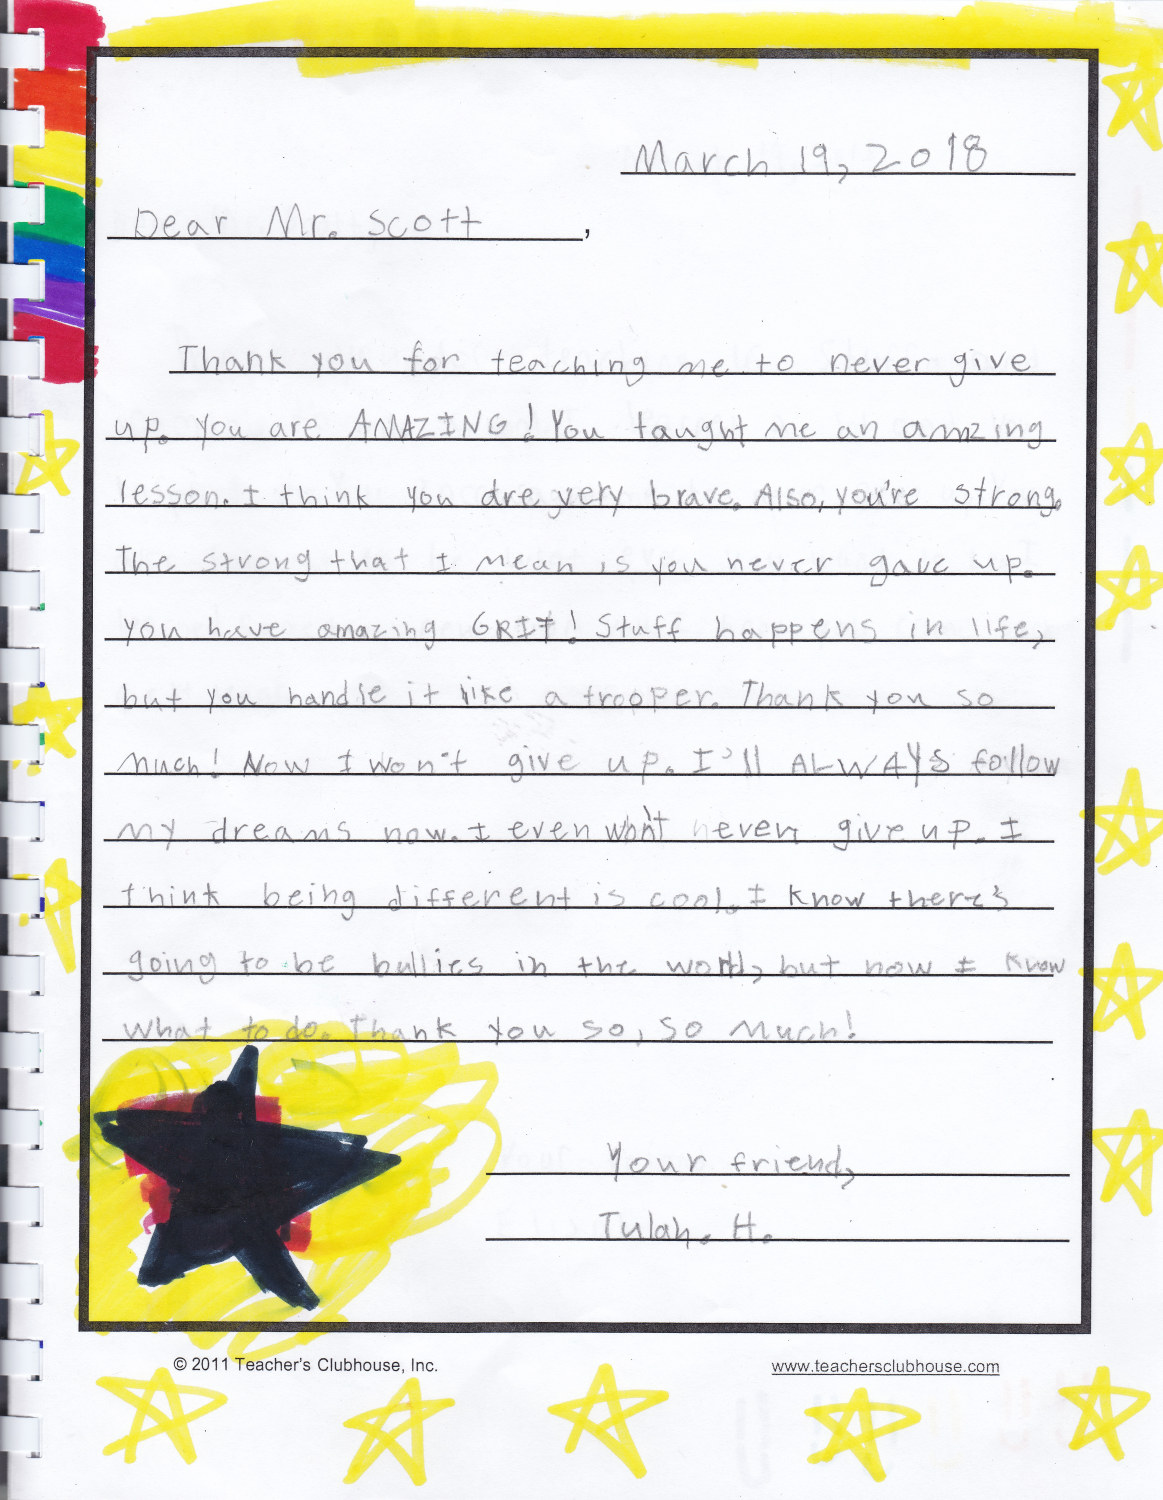 March 19, 2018
Dear Mr. Scott,
Thank you for teaching me to never give
up. You are AMAZING! You taught me an amzing
lesson. I think you are very brave. Also, you're strong.
The strong that I mean is you never gave up.
you have amazing GRIT! Stuff happens in life,
but you handle it like a trooper. Thank you so
much! Now I won't give up. I'll ALWAYS follow
my dreams now. I even won't never give up. I
think being different is cool. I know there's
going to be bullies in the world, but now I know
what to do. Thank you so, so much!
Your friend,
Tulah. H.
© 2011 Teacher's Clubhouse, Inc. www.teachersclubhouse.com